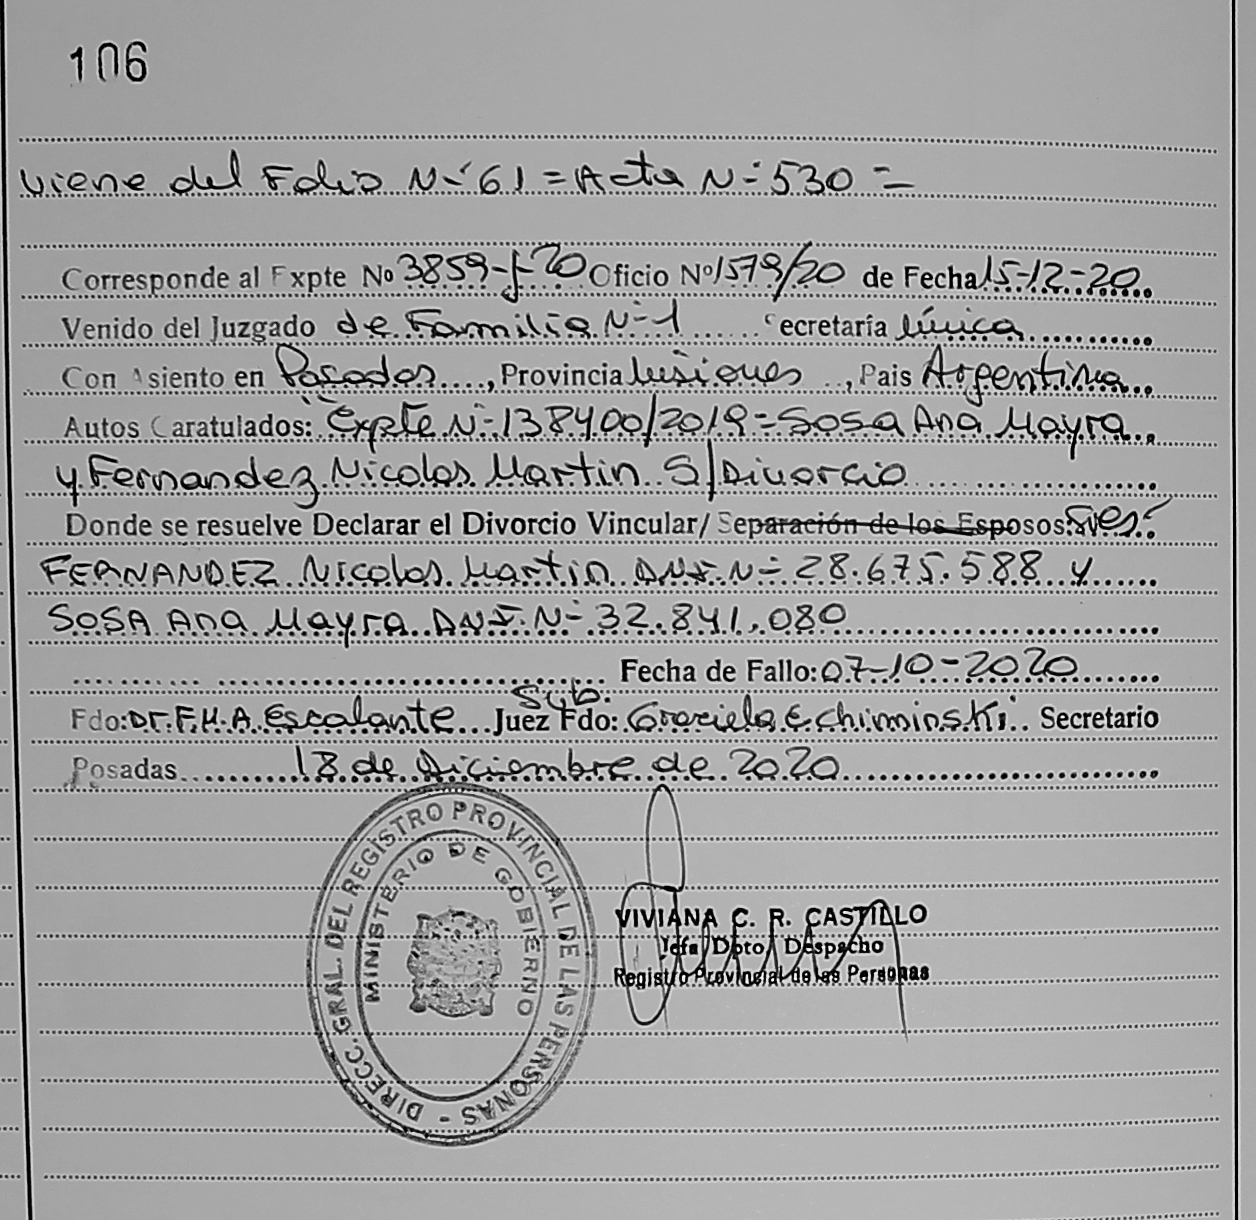 106
Viene del Folio N° 61 = Acta N° 530 =
Corresponde al Expte No 3859-f-20 Oficio Nº 1579/20 de Fecha 15-12-20
Venido del Juzgado de Familia N° 1 Secretaría Única
Con Asiento en Posadas, Provincia Misiones, Pais Argentina
Autos Caratulados: "Expte N° 138400/2019 = Sosa Ana Mayra
y Fernandez Nicolas Martin S/Divorcio
Donde se resuelve Declarar el Divorcio Vincular/ Separación de los Esposos:
FERNANDEZ Nicolas Martin DNI N° 28.675.588 y
SOSA Ana Mayra DNI N° 32.841.080
Fecha de Fallo: 07-10-2020
Sub.
Fdo: Dr. F.M.A. Escalante Juez Fdo: Graciela Echiminski Secretario
Posadas 18 de Diciembre de 2020
DIRECC. GRAL. DEL REGISTRO PROVINCIAL DE LAS PERSONAS -
MINISTERIO DE GOBIERNO
VIVIANA C. R. CASTILLO
Jefa Dpto Despacho
Registro Provincial de las Personas